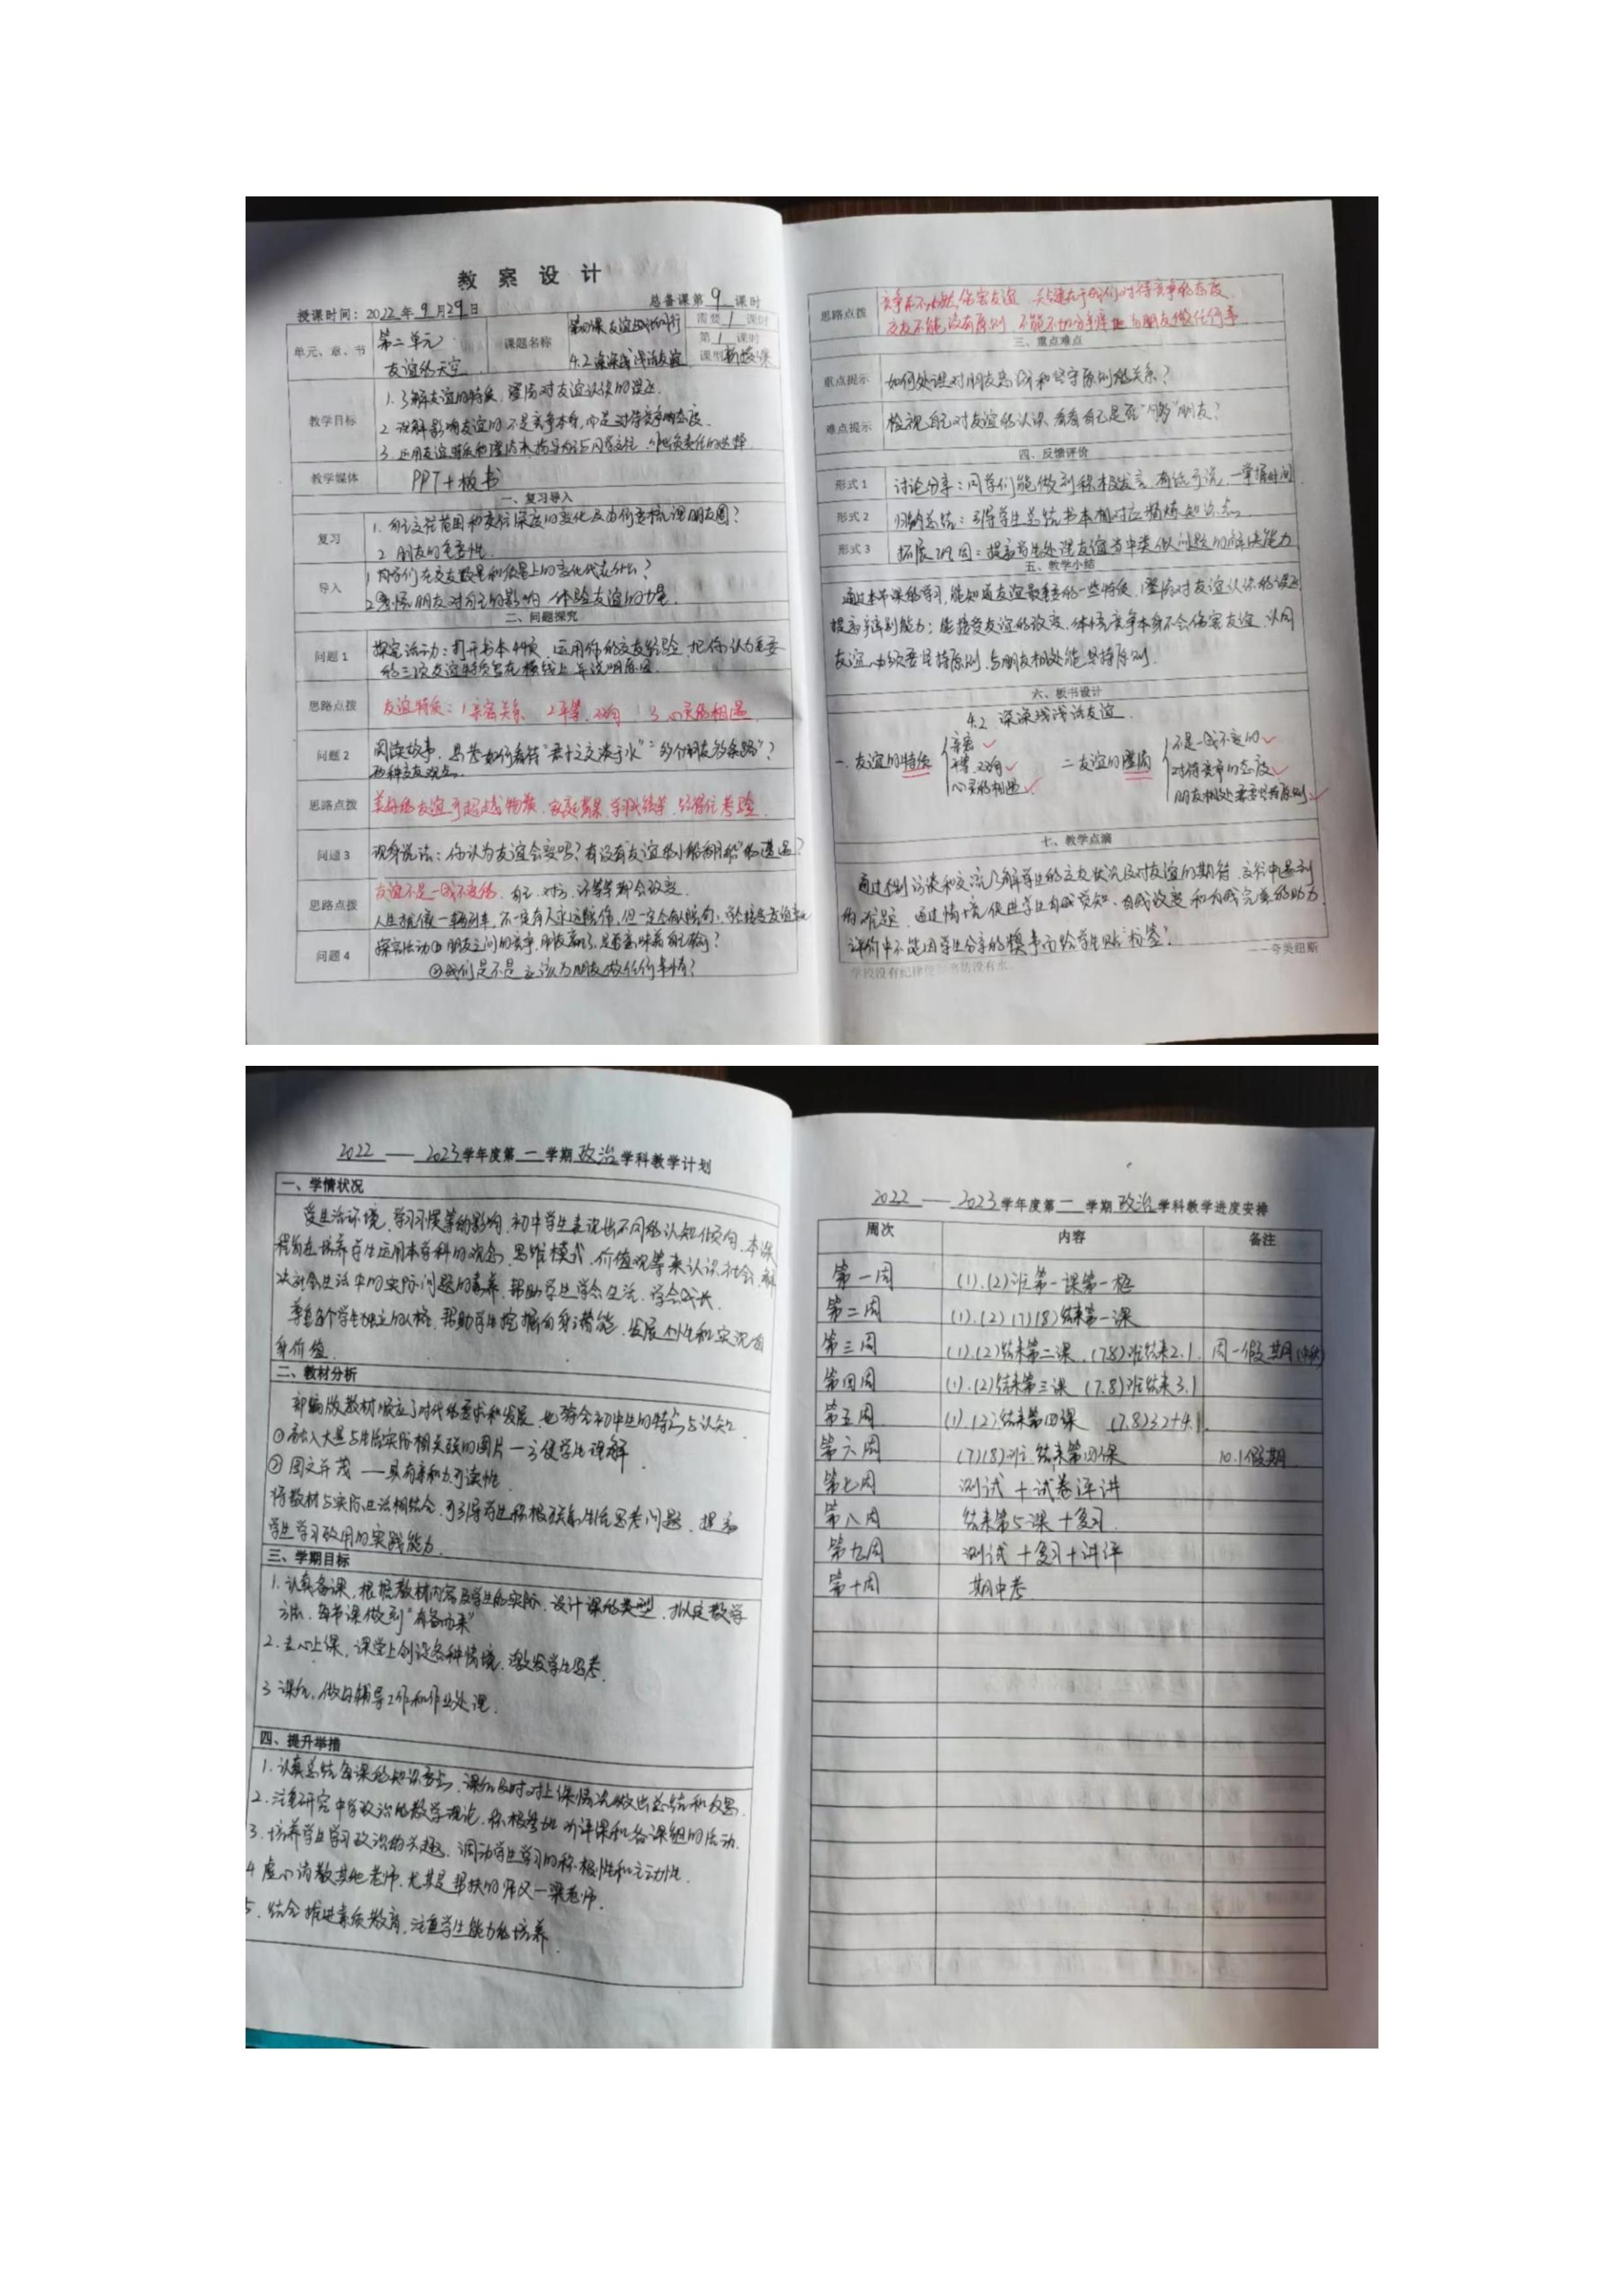 教案设计
授课时间：2022年9月29日 总备课第9课时
单元、章、节 第二单元 友谊的天空 课题名称 第四课 友谊与成长同行 4.2 深深浅浅话友谊 需要1课时 第1课时 课型 新授课
教学目标
1.了解友谊的特质，澄清对友谊认识的误区.
2.理解影响友谊的不是竞争本身，而是对待竞争的态度.
3.运用友谊特质和澄清来指导自己与同学交往，作出负责任的选择.
教学媒体 PPT+板书
一、复习导入
复习
1.自己交往范围和交往深度的变化及为何要梳理朋友圈？
2.朋友的重要性.
导入
1.同学们在交友数量和质量上的变化代表什么？
2.感悟朋友对自己的影响，体验友谊的力量.
二、问题探究
问题1 探究活动：打开书本44页，运用你的交友经验，把你认为重要
的三项友谊特质写在横线上，并说明原因.
思路点拨 友谊特质：1.亲密关系 2.平等、双向 3.心灵的相遇
问题2 阅读故事，思考如何看待“君子之交淡于水”“多个朋友多条路”？
两种交友观点.
思路点拨 美好的友谊可超越物质、家庭背景、学识等，经得住考验.
问题3 现身说法：你认为友谊会变吗？有没有“友谊的小船翻船”的遭遇？
思路点拨 友谊不是一成不变的. 自己、对方、环境等都会改变.
人生就像一辆列车，不一定有人永远陪伴，但一定会有人陪 学会接受友谊
问题4 探究活动①朋友之间的竞争，朋友赢了，是否意味着自己输？
②我们是不是应该为朋友做任何事情？
思路点拨 竞争并不必然伤害友谊，关键在于我们对待竞争的态度
交友不能没有原则，不能不加分辨地为朋友做任何事
三、重点难点
重点提示 如何处理对朋友忠诚和坚守原则的关系？
难点提示 检视自己对友谊的认识，看看自己是否“够”朋友？
四、反馈评价
形式1 讨论分享：同学们能做到积极发言，有话可说，——掌握时间
形式2 归纳总结：引导学生总结书本相对应精炼知识点
形式3 拓展巩固：提高学生处理友谊当中类似问题的解决能力
五、教学小结
通过本节课的学习，能知道友谊最重要的一些特质，澄清对友谊认识的误区
提高辨别能力；能接受友谊的改变，体悟竞争本身不会伤害友谊，认同
友谊必须要坚持原则，与朋友相处能坚持原则.
六、板书设计
4.2 深深浅浅话友谊
一.友谊的特质 亲密 平等、双向 心灵的相遇
二.友谊的澄清 不是一成不变的 对待竞争的态度 朋友相处要坚持原则
七、教学点滴
通过个别访谈和交流了解学生的交友状况及对友谊的期待，交往中遇到
的难题. 通过情境促进学生自我觉知、自我改变和自我完善的助力
评价中不能因学生分享的糗事而给学生贴“标签”.
学校没有纪律便如磨坊没有水。 ——夸美纽斯
2022——2023学年度第一学期政治学科教学计划
一、学情状况
受生活环境、学习习惯等的影响，初中学生表现出不同的认知倾向，本课
程旨在培养学生运用本学科的观念、思维模式、价值观等来认识社会，解
决社会生活中的实际问题的素养，帮助学生学会生活，学会成长.
尊重每个学生独立的人格，帮助学生挖掘自身潜能，发展个性和实现自
身价值.
二、教材分析
部编版教材顺应了时代的要求和发展，也符合初中生的特点与认知.
①插入大量与生活实际相关联的图片——方便学生理解.
②图文并茂——具有亲和力、可读性
将教材与实际生活相结合，可引导学生积极联系生活思考问题，提高
学生学习致用的实践能力.
三、学期目标
1.认真备课，根据教材内容及学生的实际，设计课的类型，拟定教学
方法，每节课做到“有备而来”
2.专心上课，课堂上创设各种情境，激发学生思考.
3.课后，做好辅导工作和作业处理.
四、提升举措
1.认真总结每课的知识要点，课后及时对上课情况做出总结和反思.
2.注重研究中学政治的教学理论，积极参加听评课和备课组的活动.
3.培养学生学习政治的兴趣，调动学生学习的积极性和主动性.
4.虚心请教其他老师，尤其是帮扶的师父——梁老师.
5.结合推进素质教育，注重学生能力的培养.
2022——2023学年度第一学期政治学科教学进度安排
周次 内容 备注
第一周 (1).(2)班第一课第一框
第二周 (1).(2)(7)(8)结束第一课
第三周 (1).(2)结束第二课，(7.8)班结束2.1. 周一假期(中秋)
第四周 (1).(2)结束第三课 (7.8)班结束3.1
第五周 (1).(2)结束第四课 (7.8)3.2+4.1.
第六周 (7)(8)班结束第四课 10.1假期
第七周 测试+试卷评讲
第八周 结束第5课+复习
第九周 测试+复习+讲评
第十周 期中考